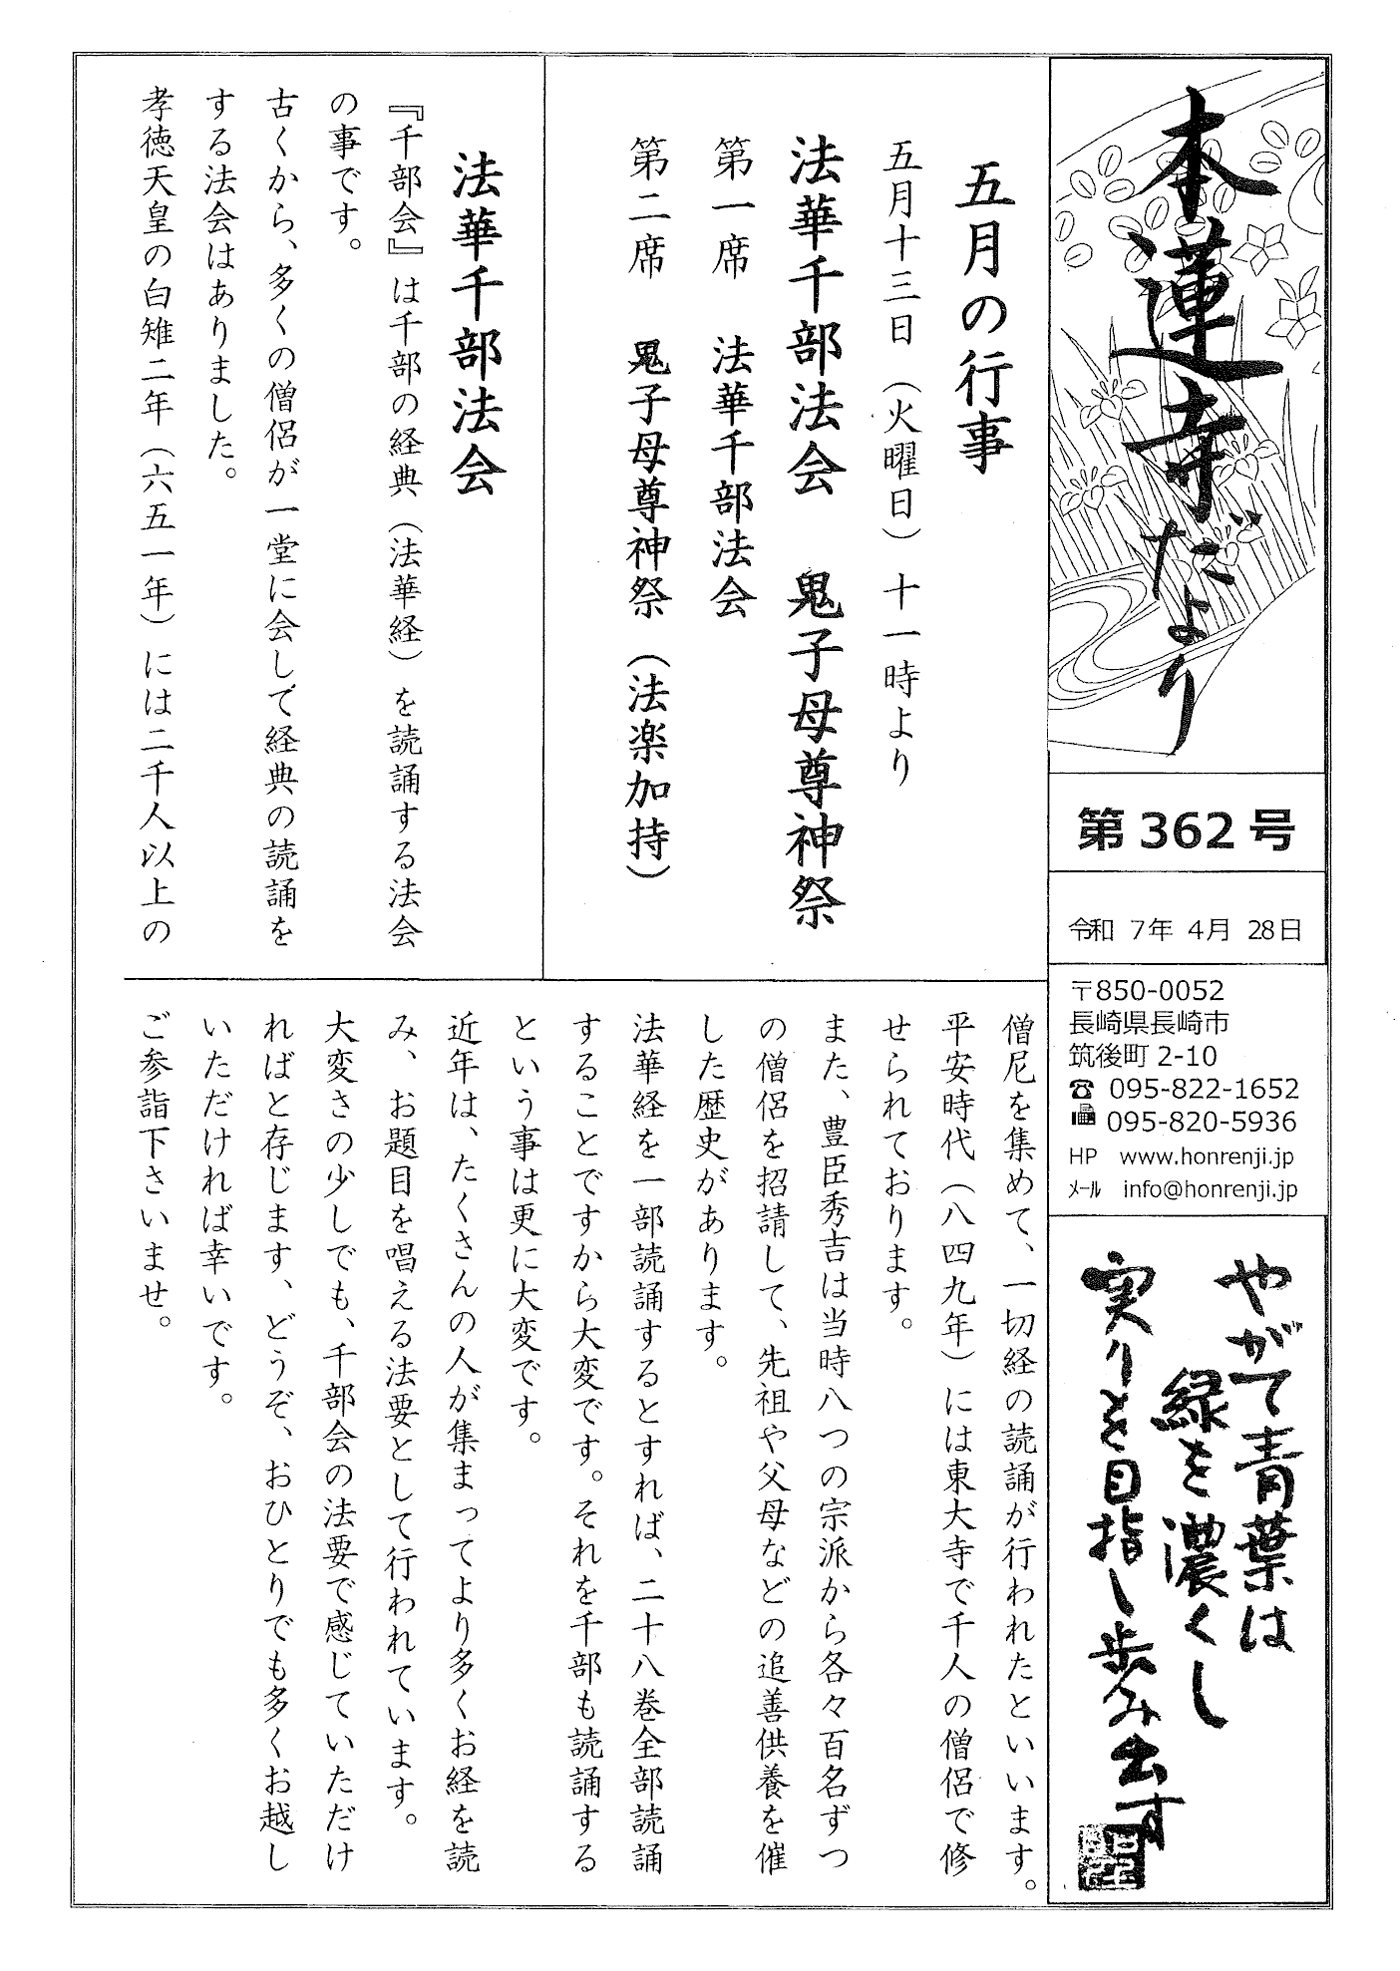 本蓮寺だより
第362号
令和 7年 4月 28日
〒850-0052
長崎県長崎市
筑後町 2-10
☎ 095-822-1652
095-820-5936
HP www.honrenji.jp
ﾒｰﾙ info@honrenji.jp
やがて青葉は
緑を濃くし
実りを目指し歩み出す
五月の行事
五月十三日（火曜日）十一時より
法華千部法会 鬼子母尊神祭
第一席 法華千部法会
第二席 鬼子母尊神祭（法楽加持）
法華千部法会
『千部会』は千部の経典（法華経）を読誦する法会
の事です。
古くから、多くの僧侶が一堂に会して経典の読誦を
する法会はありました。
孝徳天皇の白雉二年（六五一年）には二千人以上の
僧尼を集めて、一切経の読誦が行われたといいます。
平安時代（八四九年）には東大寺で千人の僧侶で修
せられております。
また、豊臣秀吉は当時八つの宗派から各々百名ずつ
の僧侶を招請して、先祖や父母などの追善供養を催
した歴史があります。
法華経を一部読誦するとすれば、二十八巻全部読誦
することですから大変です。それを千部も読誦する
という事は更に大変です。
近年は、たくさんの人が集まってより多くお経を読
み、お題目を唱える法要として行われています。
大変さの少しでも、千部会の法要で感じていただけ
ればと存じます、どうぞ、おひとりでも多くお越し
いただければ幸いです。
ご参詣下さいませ。